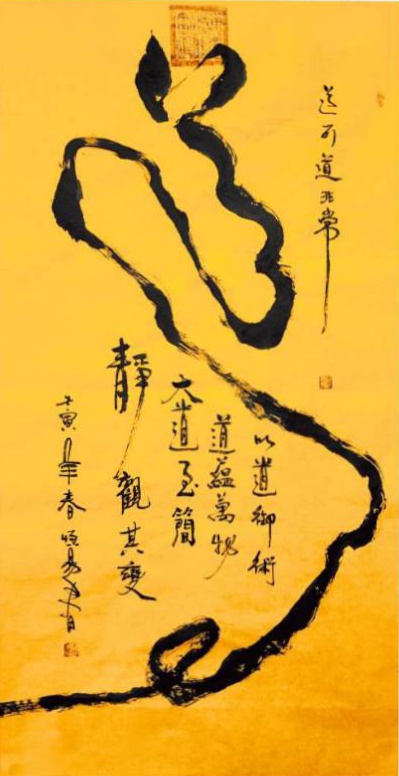 道可道非常
以道御術
道蘊萬物
大道至簡
靜觀其變
壬寅年春